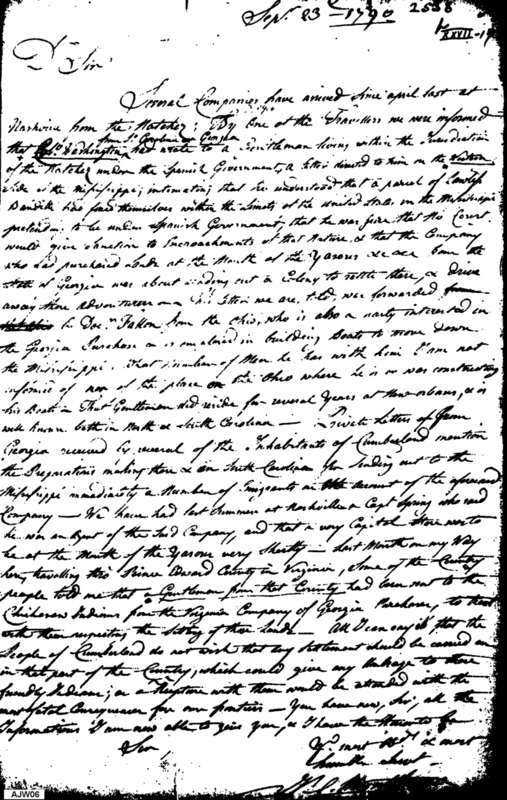 Sepr. 23 - 1790 2558
XXVII-19
Dr Sir
Several Companies have arrived Since april last at
Nashville from the Natchez; By One of the Travellers we were informed
from So. Carolina or Georgia
that Col. Washington had wrote to a Gentleman living within the Jurisdiction
of the Natchez under the Spanish Government, a letter directed to him on the
Side of the Mississippi; intimating that he understood that a parcel of Lawless
Banditti had fixed themselves within the Limits of the united States, on the Mississippi
pretending to be under Spanish Government; that he was sure that No Court
would give Sanction to Encroachments of that Nature, & that the Company
who had purchased Lands at the Mouth of the Yazous &c &c from the
State of Georgia was about sending out a Colony to settle there, & drive
away those adventurers — his letters we are told, was forwarded
to Docr. Fallon from the Ohio, who is also a party interested in
the Georgia Purchase & is employed in building Boats to move down
the Mississippi. What number of Men he has with him I am not
informed of nor of the place on the Ohio where he is or was constructing
his Boats — That Gentleman did reside for several Years at New-orleans, & is
well known both in North & South Carolina — Private Letters from
Georgia received by several of the Inhabitants of Cumberland mention
the Preparations making there & in South Carolina for sending out to the
Mississippi immediately a Number of Emigrants on account of the aforesaid
Company — We have had last Summer at Nashville a Capt Spring who said
he was an Agent of the Said Company, and that a very Capital Store was to
be at the Mouth of the Yazous very Shortly — Last Month on my Way
here, travelling thro' Prince Edward County in Virginia, Some of the County
people told me that a Gentleman from that County had been sent to the
Chikasaw Indians from the Virginia Company of Georgia Purchase, to treat
with them respecting the Setling of those Lands — All I can say is, that the
People of Cumberland do not wish that any Settlement should be carried on
in that part of the Country, which could give any Umbrage to those
friendly Indians; as a Rupture with them would be attended with the
most fatal Consequences for our frontiers — You have now, Sir, all the
Informations I am now able to give you, & I have the Honour to be
Sir, Yr. most obt. & most
humble Servt
AJW06